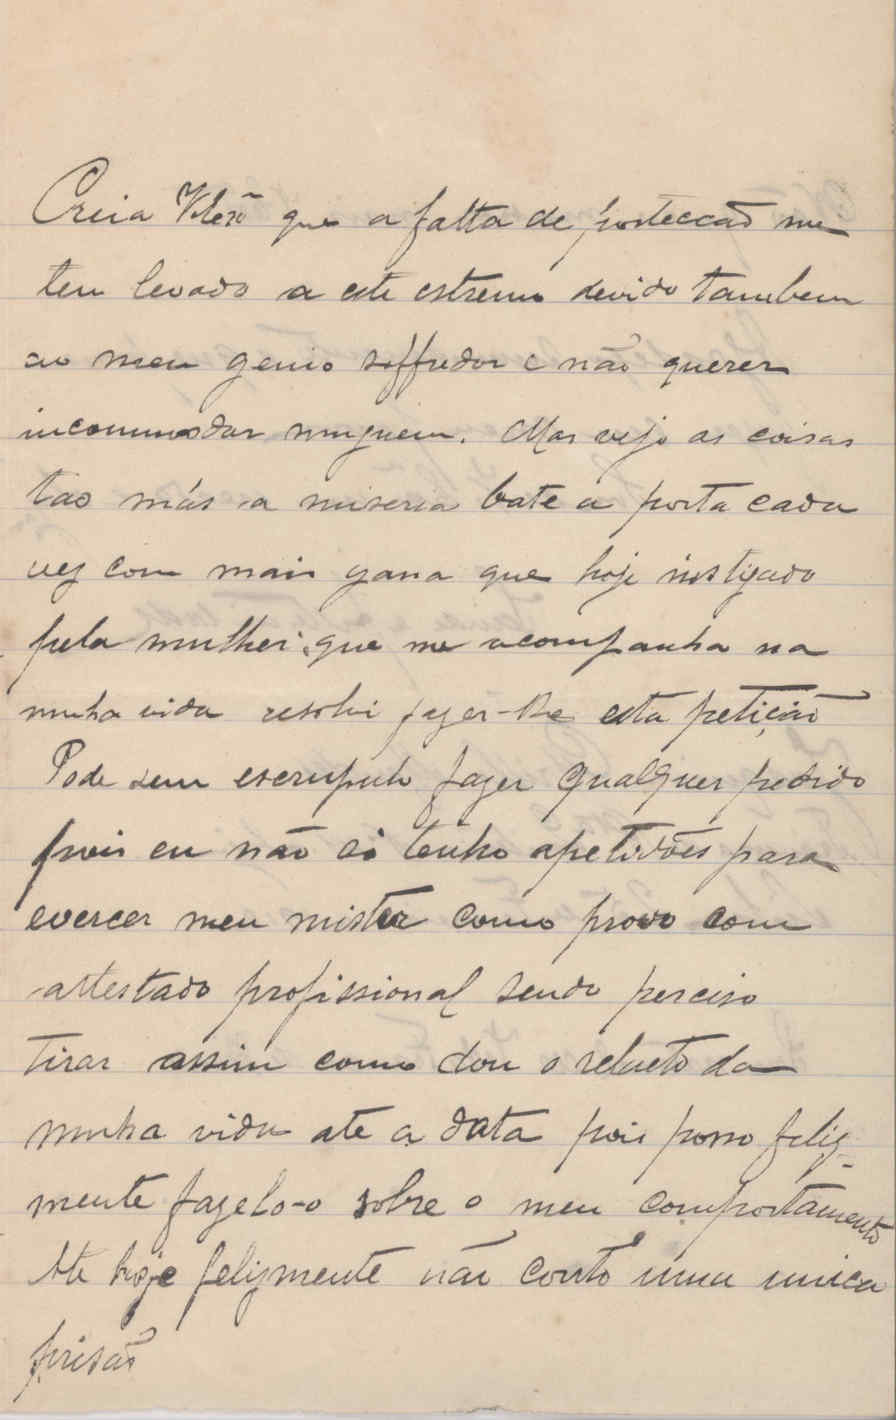 Creia que a falta de protecção me
tem levado a este estremo devido tambem
ao meu genio soffredor e não querer
incommodar ninguem. Mas vejo as coisas
tao más a miseria bate a porta cada
vez com mais gana que hoje instigado
pela mulher que me acompanha na
minha vida resolvi fazer-lhe esta petição
Pode sem escrupulo fazer qualquer pedido
pois eu não só tenho apetidões para
exercer meu mister como provo com
attestado profissional sendo perciso
tirar assim como dou o relacto da
minha vida ate a data pois posso feliz-
mente fazelo-o sobre o meu comportamento
Ate hoje felizmente não conto uma unica
prisão